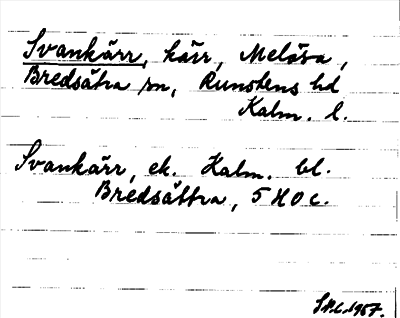 Svankärr, kärr, Melösa,
Bredsätra sn, Runstens hd
Kalm. l.
Svankärr, ek. Kalm. bl.
Bredsättra, 5 H 0 c.
1957.